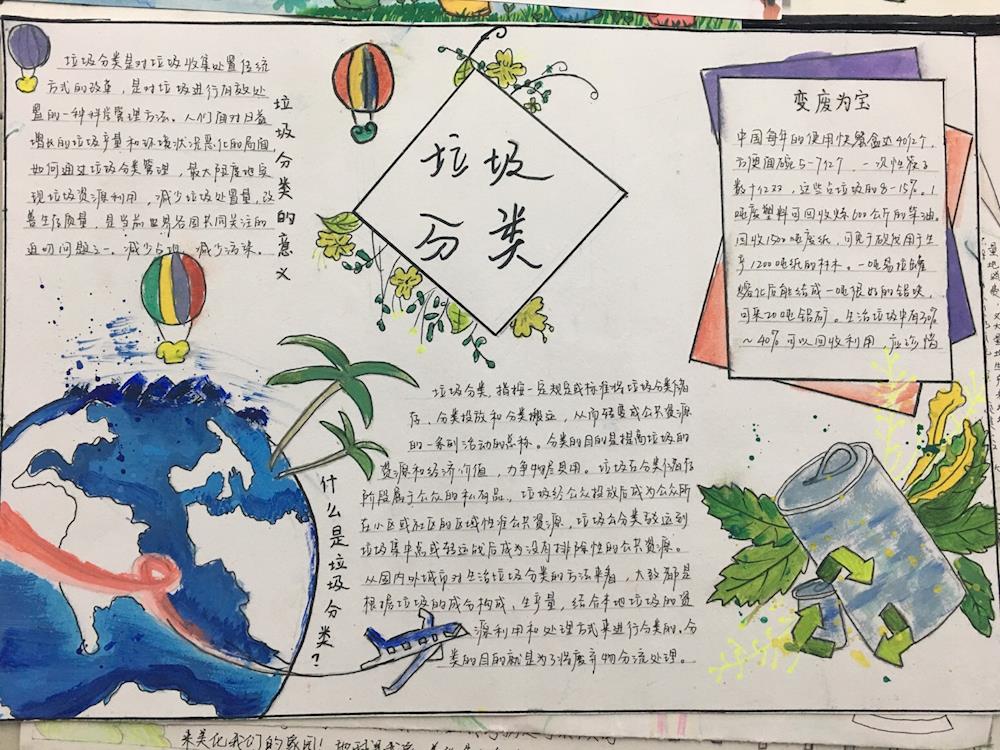 垃圾分类是对垃圾收集处置传统
方式的改革，是对垃圾进行有效处
置的一种科学管理方法。人们面对日益
增长的垃圾产量和环境状况恶化的局面，
如何通过垃圾分类管理，最大限度地实
现垃圾资源利用，减少垃圾处置量，改
善生存质量，是当前世界各国共同关注的
迫切问题之一。减少占地，减少污染。
垃圾分类的意义
垃圾
分类
变废为宝
中国每年的使用快餐盒达40亿个，
方便面碗5-7亿个，一次性筷子
数十亿，这些占垃圾的8-15%。1
吨废塑料可回收炼600公斤的柴油。
回收1500吨废纸，可免于砍伐用于生
产1200吨纸的林木。一吨易拉罐
熔化后能结成一吨很好的铝块，
可采20吨铝矿。生活垃圾中有30%
~40%可以回收利用，应珍惜
什么是垃圾分类？
垃圾分类，指按一定规定或标准将垃圾分类储
存、分类投放和分类搬运，从而转变成公共资源
的一系列活动的总称。分类的目的是提高垃圾的
资源和经济价值，力争物尽其用。垃圾在分类储存
阶段属于公众的私有品，垃圾经公众投放后成为公众所
在小区或社区的区域性准公共资源，垃圾分类驳运到
垃圾集中点或转运站后成为没有排除性的公共资源。
从国内外城市对生活垃圾分类的方法来看，大致都是
根据垃圾的成分构成、生产量，结合本地垃圾的资
源利用和处理方式来进行分类的。分
类的目的就是为了将废弃物分流处理。
来美化我们的家园！